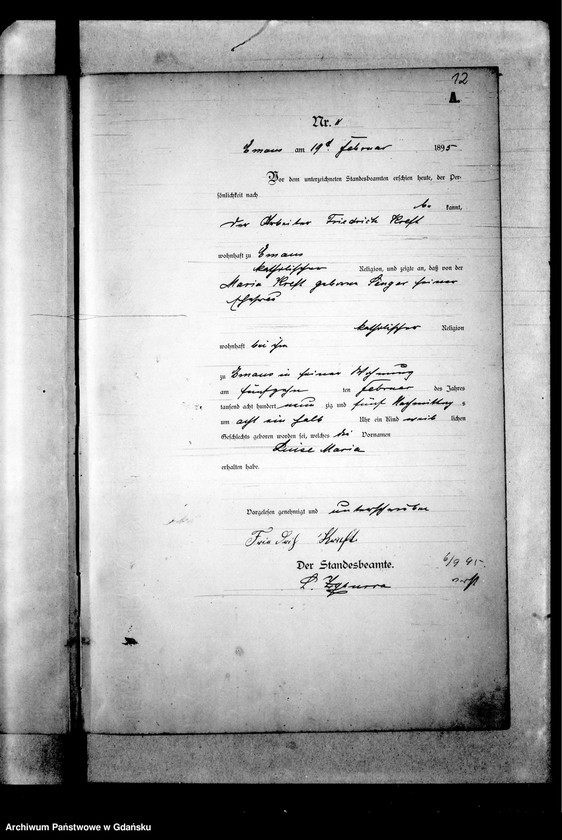 12
A.
Nr. 11
Emaus am 19t Februar 1895
Vor dem unterzeichneten Standesbeamten erschien heute, der Per-
sönlichkeit nach
be kannt,
der Arbeiter Friedrich Kreft
wohnhaft zu Emaus
katholischer Religion, und zeigte an, daß von der
Maria Kreft geborne Singer seiner
Ehefrau
katholischer Religion
wohnhaft bei ihm
zu Emaus in seiner Wohnung
am fünfzehn ten Februar des Jahres
tausend acht hundert neun zig und fünf Nachmittag s
um acht ein halb Uhr ein Kind weib lichen
Geschlechts geboren worden sei, welches die Vornamen
Luise Maria
erhalten habe.
Vorgelesen genehmigt und unterschrieben
Friedrich Kreft.
Der Standesbeamte.
6/9 95.
Archiwum Państwowe w Gdańsku